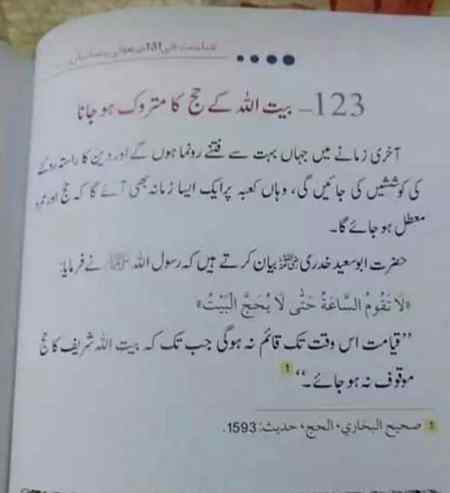 123- بیت اللہ کے حج کا متروک ہو جانا
آخری زمانے میں جہاں بہت سے فتنے رونما ہوں گے اور دین کا راستہ روکنے
کی کوششیں کی جائیں گی، وہاں کعبہ پر ایک ایسا زمانہ بھی آئے گا کہ حج اور عمرہ
معطل ہو جائے گا۔
حضرت ابوسعید خدری رضی اللہ عنہ بیان کرتے ہیں کہ رسول اللہ ﷺ نے فرمایا:
«لَا تَقُومُ السَّاعَةُ حَتَّى لَا يُحَجَّ الْبَيْتُ»
”قیامت اس وقت تک قائم نہ ہوگی جب تک کہ بیت اللہ شریف کا حج
موقوف نہ ہو جائے۔“ 1
1 صحیح البخاري، الحج، حدیث: 1593.